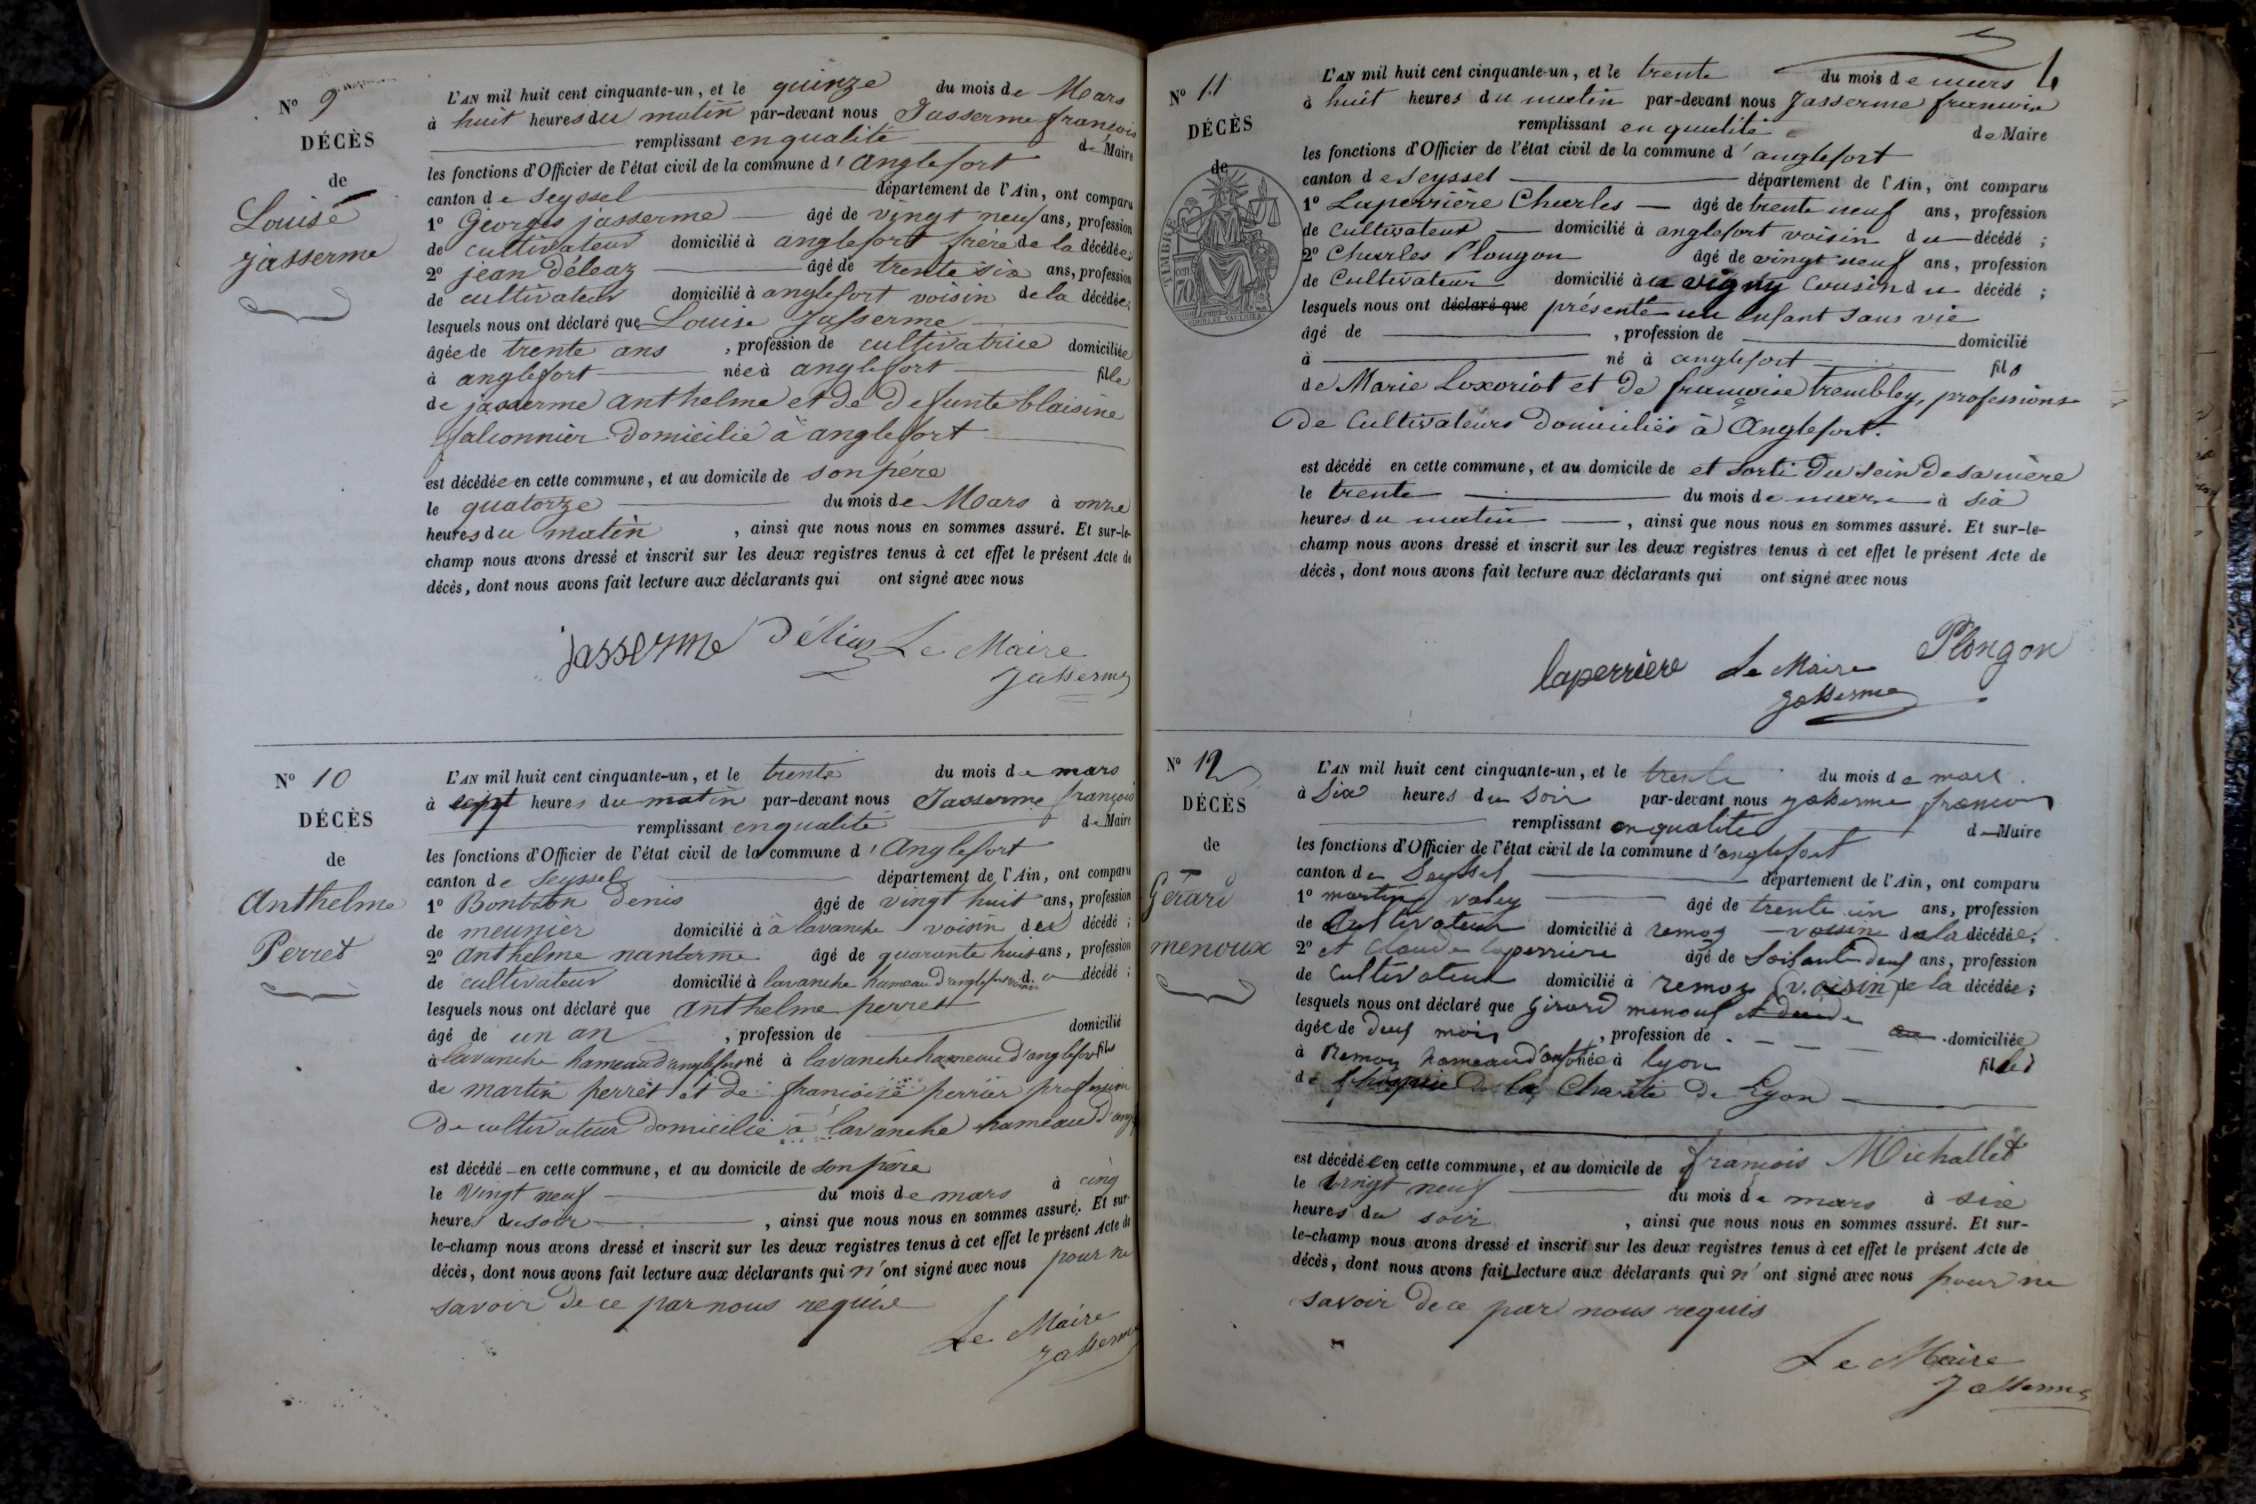 Nº 9
DÉCÈS
de
Louise
jasserme
L'AN mil huit cent cinquante-un, et le quinze du mois de Mars
à huit heures du matin par-devant nous Jasserme françois
remplissant en qualité de Maire
les fonctions d'Officier de l'état civil de la commune d'anglefort
canton de Seyssel département de l'Ain, ont comparu
1º Georges jasserme âgé de vingt neuf ans, profession
de cultivateur domicilié à anglefort frère de la décédée;
2º jean déléaz âgé de trente six ans, profession
de cultivateur domicilié à anglefort voisin de la décédée;
lesquels nous ont déclaré que Louise Jasserme
âgée de trente ans, profession de cultivatrice domiciliée
à anglefort née à anglefort fille
de jasserme anthelme et de defunte blaisine
falconnier domicilié à anglefort
est décédée en cette commune, et au domicile de son père
le quatorze du mois de Mars à onze
heures du matin, ainsi que nous nous en sommes assuré. Et sur-le-
champ nous avons dressé et inscrit sur les deux registres tenus à cet effet le présent Acte de
décès, dont nous avons fait lecture aux déclarants qui ont signé avec nous
jasserme Déliaz Le Maire
Jasserme
Nº 10
DÉCÈS
de
Anthelme
Perret
L'AN mil huit cent cinquante-un, et le trente du mois de mars
à sept heures du matin par-devant nous Jasserme françois
remplissant en qualité de Maire
les fonctions d'Officier de l'état civil de la commune d'anglefort
canton de Seyssel département de l'Ain, ont comparu
1º denis âgé de vingt huit ans, profession
de meunier domicilié à à lavanche voisin du décédé;
2º anthelme nanterme âgé de quarante huit ans, profession
de cultivateur domicilié à lavanche hameau d'anglefort du décédé;
lesquels nous ont déclaré que anthelme perret
âgé de un an, profession de domicilié
à lavanche hameau d'anglefort né à lavanche hameau d'anglefort fils
de martin perret et de françoise perrier profession
de cultivateur domicilié à lavanche hameau d'ang
est décédé en cette commune, et au domicile de son père
le vingt neuf du mois de mars à cinq
heures du soir, ainsi que nous nous en sommes assuré. Et sur-
le-champ nous avons dressé et inscrit sur les deux registres tenus à cet effet le présent Acte de
décès, dont nous avons fait lecture aux déclarants qui n'ont signé avec nous pour ne
savoir de ce par nous requis
Le Maire
Jasserme
4
Nº 11
DÉCÈS
de
TIMBRE
70
L'AN mil huit cent cinquante-un, et le trente du mois de mars
à huit heures du matin par-devant nous Jasserme francois
remplissant en qualité de Maire
les fonctions d'Officier de l'état civil de la commune d'anglefort
canton de Seyssel département de l'Ain, ont comparu
1º Laperrière Charles âgé de trente neuf ans, profession
de cultivateur domicilié à anglefort voisin du décédé;
2º Charles Plongon âgé de vingt neuf ans, profession
de Cultivateur domicilié à a vigny Cousin du décédé;
lesquels nous ont déclaré que présenté un enfant sans vie
âgé de, profession de domicilié
à né à anglefort fils
de Marie Loxoriot et de françoise trembley, professions
de Cultivateurs domiciliés à Anglefort.
est décédé en cette commune, et au domicile de et sorti du sein de sa mère
le trente du mois de mars à six
heures du matin, ainsi que nous nous en sommes assuré. Et sur-le-
champ nous avons dressé et inscrit sur les deux registres tenus à cet effet le présent Acte de
décès, dont nous avons fait lecture aux déclarants qui ont signé avec nous
laperrière Le Maire Plongon
Jasserme
Nº 12
DÉCÈS
de
Gerard
menoux
L'AN mil huit cent cinquante-un, et le trente du mois de mars
à Six heures du Soir par-devant nous Jasserme francois
remplissant en qualité de Maire
les fonctions d'Officier de l'état civil de la commune d'anglefort
canton de Seyssel département de l'Ain, ont comparu
1º martin valey âgé de trente un ans, profession
de Cultivateur domicilié à remoz voisin de la décédée;
2º et Claude laperriere âgé de Soisante deuf ans, profession
de Cultivateur domicilié à remoz (voisin) de la décédée;
lesquels nous ont déclaré que Girard menouf
âgée de deuf mois, profession de domiciliée
à Remoz hameau d'anf née à lyon fille
de la Charité de Lyon
est décédée en cette commune, et au domicile de françois Michallet
le vingt neuf du mois de mars à six
heures du soir, ainsi que nous nous en sommes assuré. Et sur-
le-champ nous avons dressé et inscrit sur les deux registres tenus à cet effet le présent Acte de
décès, dont nous avons fait lecture aux déclarants qui n'ont signé avec nous pour ne
savoir de ce par nous requis
Le Maire
Jasserme